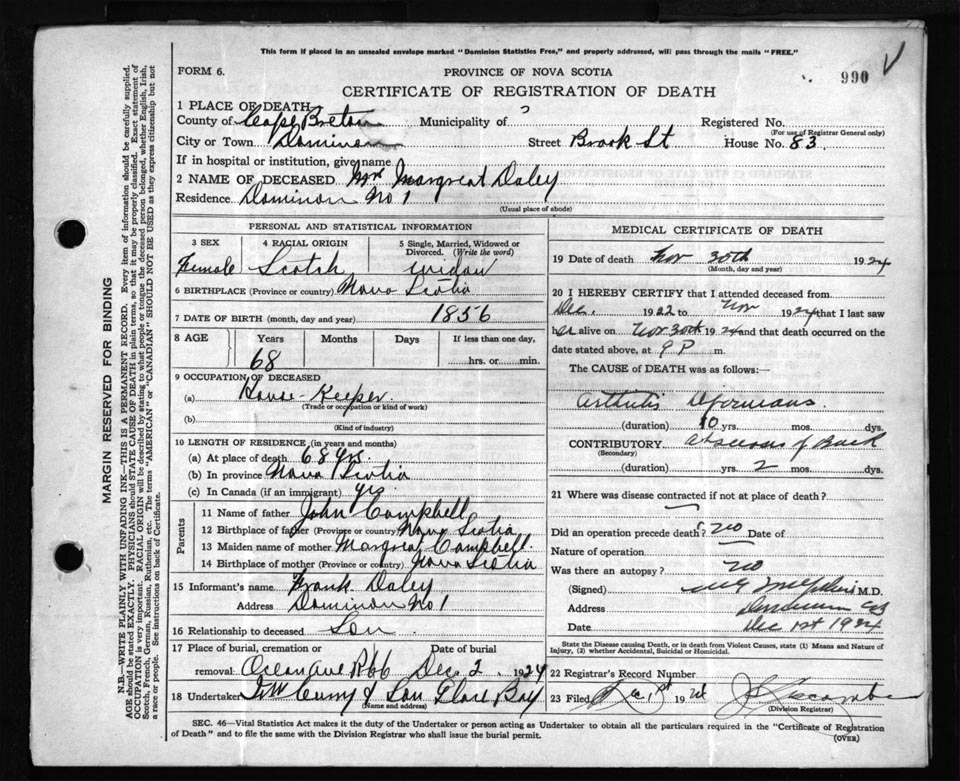 This form if placed in an unsealed envelope marked "Dominion Statistics Free," and properly addressed, will pass through the mails "FREE."
FORM 6. PROVINCE OF NOVA SCOTIA 990
CERTIFICATE OF REGISTRATION OF DEATH
1 PLACE OF DEATH
County of Cape Breton Municipality of ? Registered No.
(For use of Registrar General only)
City or Town Dominion Street Brook St House No. 83
If in hospital or institution, give name
2 NAME OF DECEASED Mrs Margreat Daley
Residence Dominion No 1
(Usual place of abode)
PERSONAL AND STATISTICAL INFORMATION
3 SEX 4 RACIAL ORIGIN 5 Single, Married, Widowed or Divorced. (Write the word)
Female Scotch widow
6 BIRTHPLACE (Province or country) Nova Scotia
7 DATE OF BIRTH (month, day and year) 1856
8 AGE Years Months Days If less than one day,
68 hrs. or min.
9 OCCUPATION OF DECEASED
(a) House-Keeper
(Trade or occupation or kind of work)
(b)
(Kind of industry)
10 LENGTH OF RESIDENCE (in years and months)
(a) At place of death 68 yrs.
(b) In province Nova Scotia
(c) In Canada (if an immigrant) yrs
Parents
11 Name of father John Campbell
12 Birthplace of father (Province or country) Nova Scotia
13 Maiden name of mother Margreat Campbell.
14 Birthplace of mother (Province or country) Nova Scotia
15 Informant's name Frank Daley
Address Dominion No 1
16 Relationship to deceased Son
17 Place of burial, cremation or removal: Date of burial
Dec 2 1924
18 Undertaker Curry & Son Glace Bay
(Name and address)
MEDICAL CERTIFICATE OF DEATH
19 Date of death Nov 30th 1924
(Month, day and year)
20 I HEREBY CERTIFY that I attended deceased from
Dec. 1922 to Nov 1924 that I last saw
her alive on Nov 30th 1924 and that death occurred on the
date stated above, at 9 P m.
The CAUSE of DEATH was as follows:—
Arthritis Deformans.
(duration) 10 yrs. mos. dys.
CONTRIBUTORY Abscess of Back
(Secondary)
(duration) yrs. 2 mos. dys.
21 Where was disease contracted if not at place of death?
Did an operation precede death? No Date of
Nature of operation
Was there an autopsy? No
(Signed) M.D.
Address Dominion CB
Date Dec 1st 1924
State the Disease causing Death, or in death from Violent Causes, state (1) Means and Nature of Injury, (2) whether Accidental, Suicidal or Homicidal.
22 Registrar's Record Number
23 Filed Dec 1st 1924
(Division Registrar)
SEC. 46—Vital Statistics Act makes it the duty of the Undertaker or person acting as Undertaker to obtain all the particulars required in the "Certificate of Registration
of Death" and to file the same with the Division Registrar who shall issue the burial permit.
(OVER)
MARGIN RESERVED FOR BINDING
N.B.—WRITE PLAINLY WITH UNFADING INK—THIS IS A PERMANENT RECORD. Every item of information should be carefully supplied.
AGE should be stated EXACTLY. PHYSICIANS should STATE CAUSE OF DEATH in plain terms, so that it may be properly classified. Exact statement of
OCCUPATION is very important. RACIAL ORIGIN will be described by stating to what people or tongue the deceased person belonged, whether English, Irish,
Scotch, French, German, Russian, Ruthenian, etc. The terms "AMERICAN" or "CANADIAN" SHOULD NOT BE USED as they express citizenship but not
a race or people. See instructions on back of Certificate.